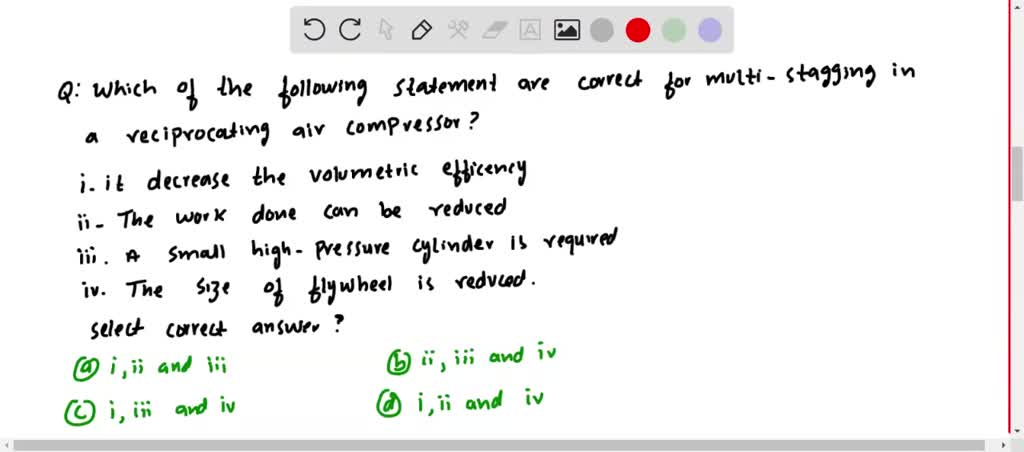 Q: Which of the following statement are correct for multi-stagging in
a reciprocating air compressor?
i. it decrease the volumetric efficency
ii- The work done can be reduced
iii. A small high-pressure cylinder is required
iv. The size of flywheel is reduced.
select correct answer?
(a) i, ii and iii
(b) ii, iii and iv
(c) i, iii and iv
(d) i, ii and iv